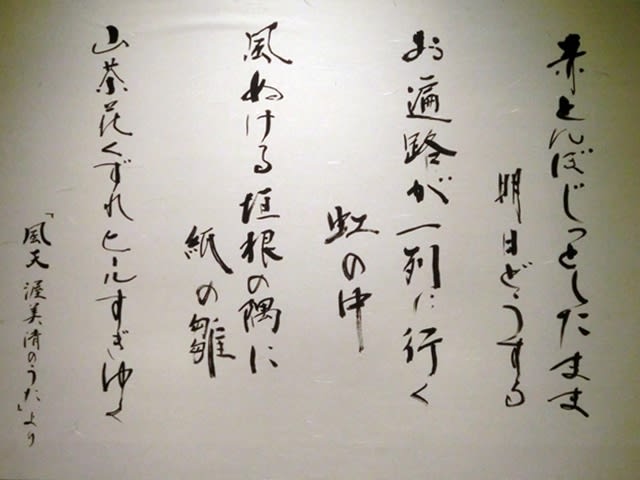 赤とんぼじっとしたまま
明日どうする
お遍路が一列に行く
虹の中
風ぬける垣根の隅に
紙の雛
山茶花くずれヒールすぎゆく
「風天 渥美清のうた」より